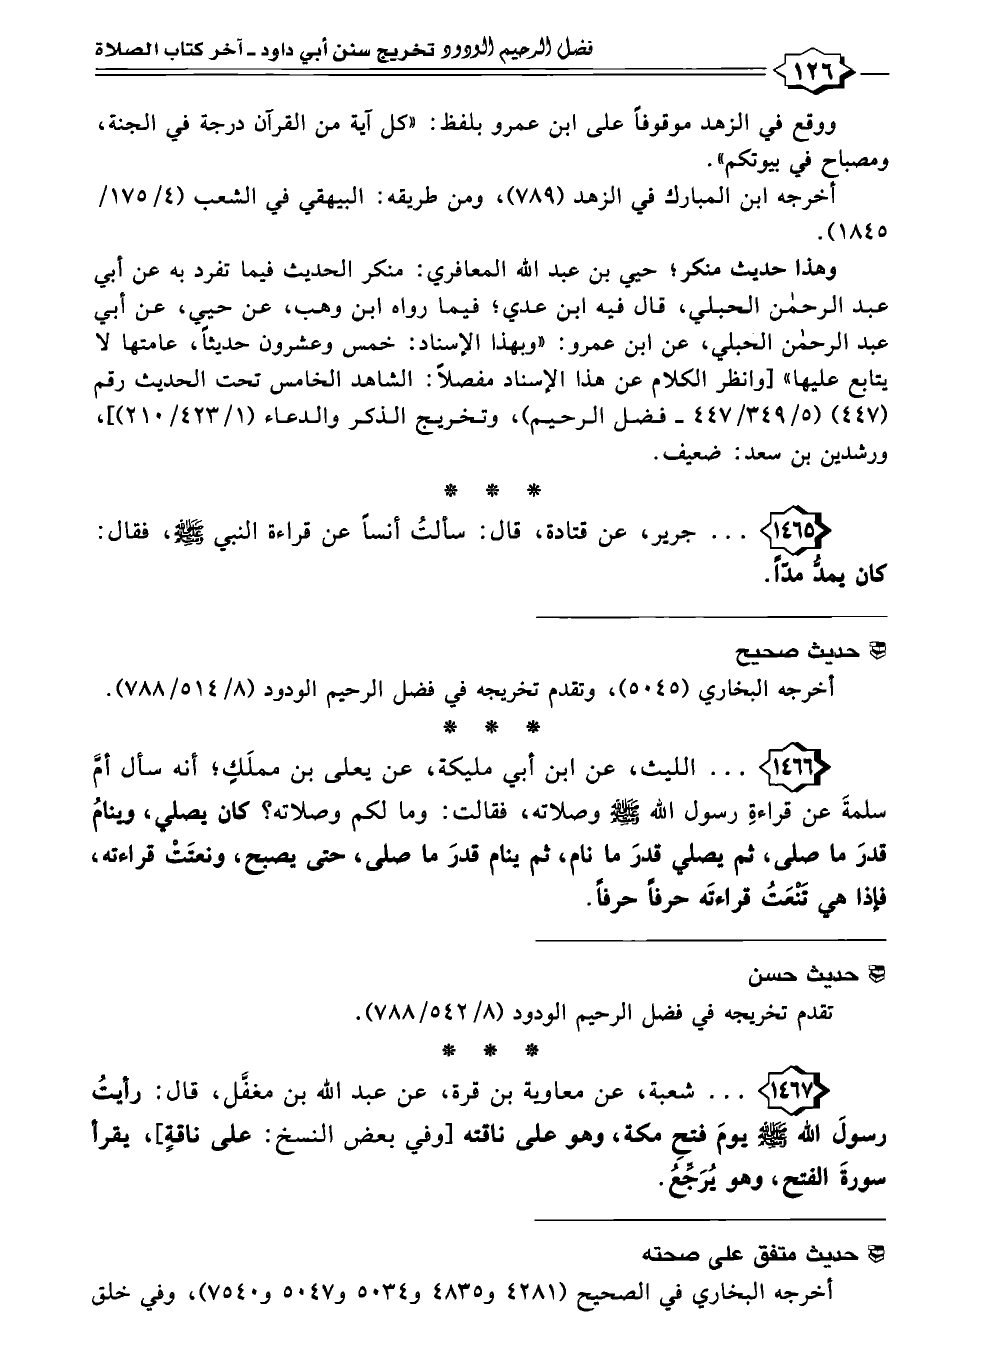 فضل الرحيم الودود تخريج سنن أبي داود - آخر كتاب الصلاة
١٢٦
ووقع في الزهد موقوفاً على ابن عمرو بلفظ: «كل آية من القرآن درجة في الجنة،
ومصباح في بيوتكم».
أخرجه ابن المبارك في الزهد (٧٨٩)، ومن طريقه: البيهقي في الشعب (٤/ ١٧٥/
١٨٤٥).
وهذا حديث منكر؛ حيي بن عبد الله المعافري: منكر الحديث فيما تفرد به عن أبي
عبد الرحمٰن الحبلي، قال فيه ابن عدي؛ فيما رواه ابن وهب، عن حيي، عن أبي
عبد الرحمٰن الحبلي، عن ابن عمرو: «وبهذا الإسناد: خمس وعشرون حديثاً، عامتها لا
يتابع عليها» [وانظر الكلام عن هذا الإسناد مفصلاً: الشاهد الخامس تحت الحديث رقم
(٤٤٧) (٥/ ٣٤٩/ ٤٤٧ - فضل الرحيم)، وتخريج الذكر والدعاء (١/ ٤٢٣/ ٢١٠)]،
ورشدين بن سعد: ضعيف.
* * *
١٤٦٥ ... جرير، عن قتادة، قال: سألتُ أنساً عن قراءة النبي ﷺ، فقال:
كان يمدُّ مدّاً.
حديث صحيح
أخرجه البخاري (٥٠٤٥)، وتقدم تخريجه في فضل الرحيم الودود (٨/ ٥١٤/ ٧٨٨).
* * *
١٤٦٦ ... الليث، عن ابن أبي مليكة، عن يعلى بن مملَكٍ؛ أنه سأل أمَّ
سلمةَ عن قراءةِ رسول الله ﷺ وصلاته، فقالت: وما لكم وصلاته؟ كان يصلي، وينامُ
قدرَ ما صلى، ثم يصلي قدرَ ما نام، ثم ينام قدرَ ما صلى، حتى يصبح، ونعتَتْ قراءته،
فإذا هي تَنْعَتُ قراءتَه حرفاً حرفاً.
حديث حسن
تقدم تخريجه في فضل الرحيم الودود (٨/ ٥٤٢/ ٧٨٨).
* * *
١٤٦٧ ... شعبة، عن معاوية بن قرة، عن عبد الله بن مغفَّل، قال: رأيتُ
رسولَ الله ﷺ يومَ فتحِ مكة، وهو على ناقته [وفي بعض النسخ: على ناقةٍ]، يقرأ
سورةَ الفتح، وهو يُرَجِّعُ.
حديث متفق على صحته
أخرجه البخاري في الصحيح (٤٢٨١ و٤٨٣٥ و٥٠٣٤ و٥٠٤٧ و٧٥٤٠)، وفي خلق